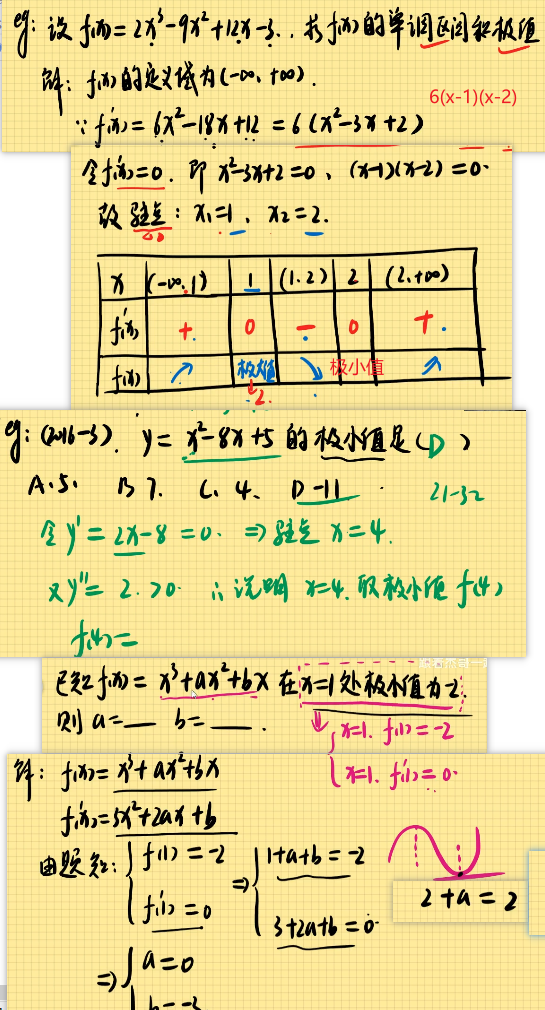 eg: 设 f(x) = 2x³-9x²+12x-3.. 求f(x)的单调区间和极值
解: f(x)的定义域为(-∞, +∞).
6(x-1)(x-2)
∵ f'(x) = 6x²-18x+12 = 6(x²-3x+2)
令f'(x)=0. 即 x²-3x+2=0、(x-1)(x-2)=0.
故 驻点: x₁=1、x₂=2.
x (-∞,1) 1 (1.2) 2 (2.+∞)
f'(x) + 0 - 0 +
f(x) ↗ 极大值 ↘ 极小值 ↗
2.
eg: (2016-3). y = x²-8x+5 的极小值是( D )
A. 5. B 7. C. 4、 D -11
21-32
令 y' = 2x-8 = 0. ⇒ 驻点 x=4.
又y'' = 2. >0. ∴ 说明 x=4. 取极小值 f(4)
f(4)=
已知 f(x) = x³+ax²+bx 在x=1处极小值为-2.
则 a=__ b=___.
x=1. f(1) = -2
x=1. f'(1) = 0.
解: f(x) = x³+ax²+bx
f'(x) = 3x²+2ax+b
由题知: { f(1) = -2 ⇒ { 1+a+b = -2
f'(1) = 0 3+2a+b = 0.
2+a = 2
⇒ { a=0
b=-3